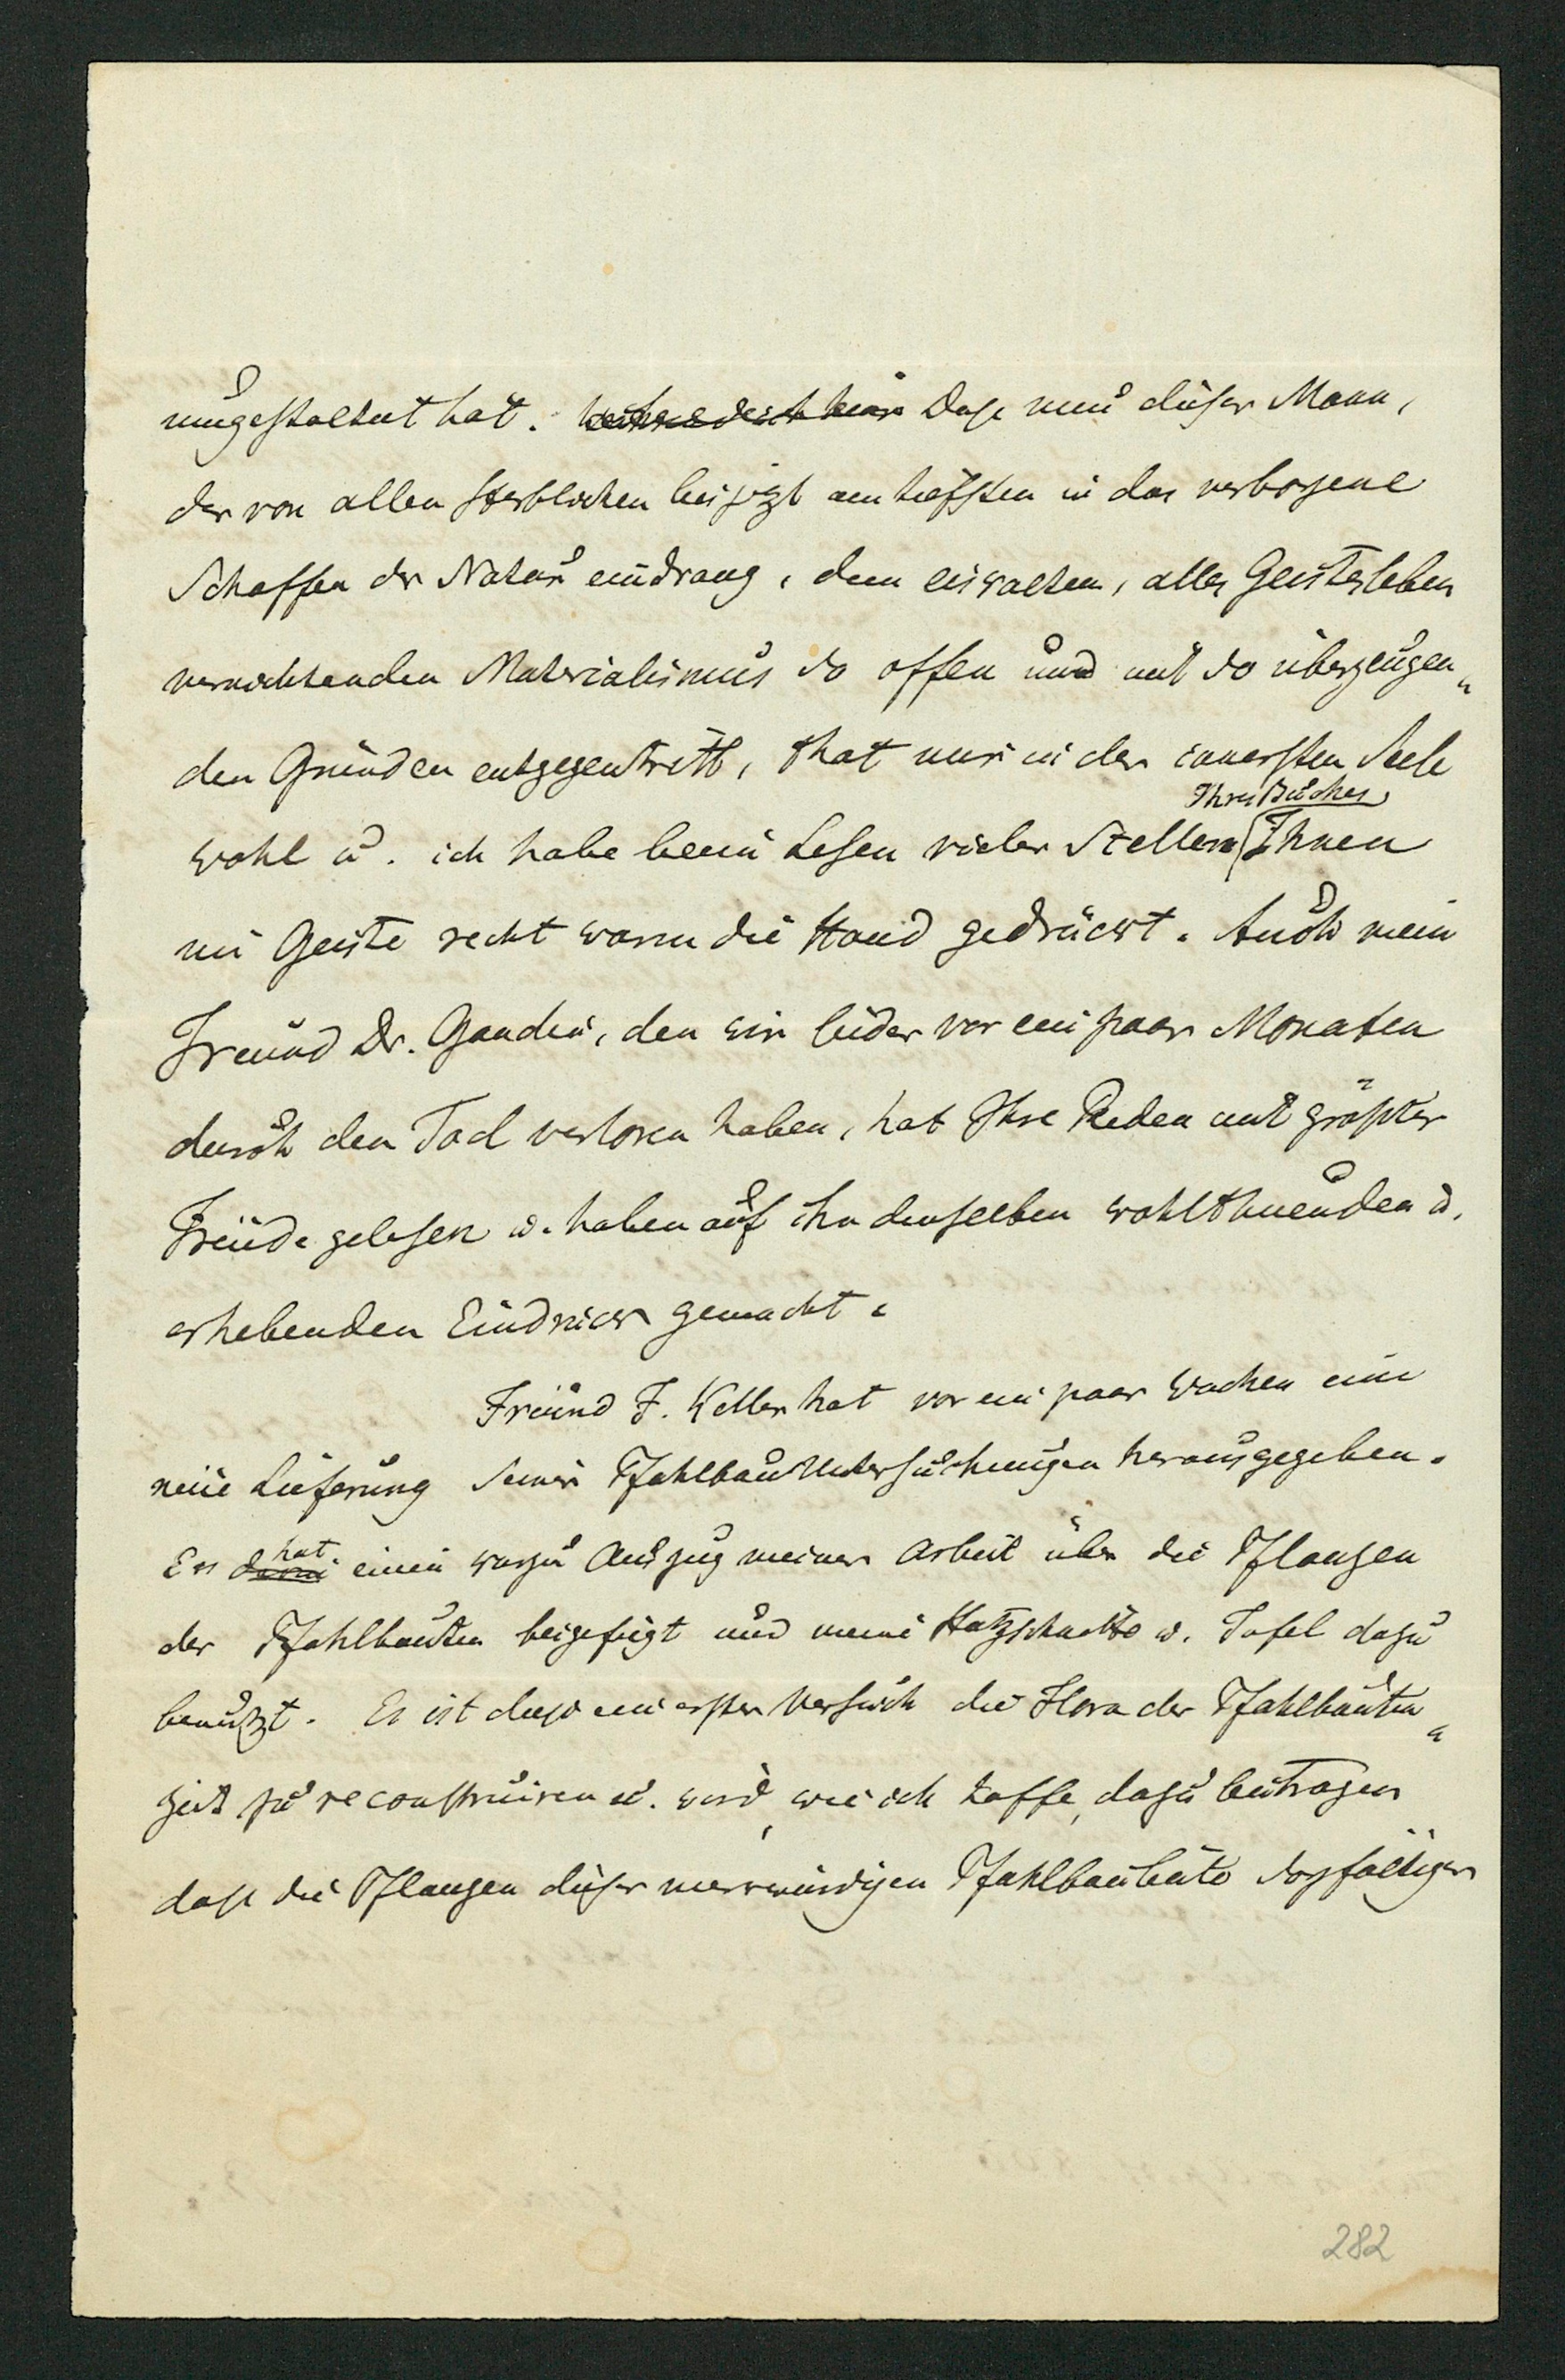 umgestaltet hat. Dass nun dieser Mann,
der von allen Sterblichen bis jezt am tiefsten in das verborgene
Schaffen der Natur eindrang, dem eiskalten, alles Geistesleben
vernichtenden Materialismus so offen und mit so überzeugen„
den Gründen entgegentritt, that mir in der innersten Seele
Ihres Buches
wohl u. ich habe beim Lesen vieler Stellen Ihnen
im Geiste recht warm die Hand gedrückt. Auch mein
Freund Dr. Gaudin, den wir leider vor ein paar Monaten
durch den Tod verloren haben, hat Ihre Reden mit größter
Freude gelesen u. haben auf ihn denselben wohlthuenden u.
erhebenden Eindruck gemacht.
Freund F. Keller hat vor ein paar Wochen eine
neue Lieferung seiner Pfahlbau Untersuchungen herausgegeben.
hat
Er einen kurzen Auszug meiner Arbeit über die Pflanzen
der Pfahlbauten beigefügt und meine Holzschnitte u. Tafel dazu
benutzt. Es ist dies ein erster Versuch die Flora der Pfahlbauten„
zeit zu reconstruiren u. wird, wie ich hoffe, dazu beitragen
dass die Pflanzen dieser merkwürdigen Pfahlbauleute sorgfältiger
282